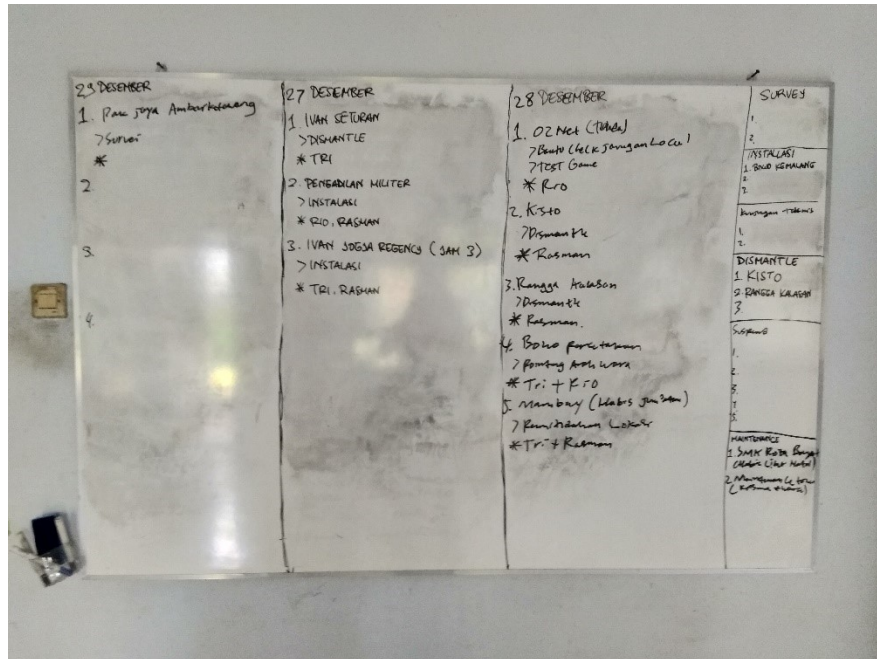 29 DESEMBER
1. Pak Joyo Ambarketawang
>Survei
*
2.
3.
4.
27 DESEMBER
1. IVAN SETURAN
>DISMANTLE
* TRI
2. PENGADILAN MILITER
>INSTALASI
* RIO, RASMAN
3. IVAN JOGJA REGENCY (JAM 3)
>INSTALASI
* TRI, RASMAN
28 DESEMBER
1. O2 Net
>Bantu Cek Jaringan Local
>TEST Game
* Rio
2. Kisto
>Dismantle
* Rasman
3. Rangga Kalasan
>Dismantle
* Rasman.
4. Boko
>Pointing
* Tri + Rio
5. (Habis Jumatan)
> Lokasi
* Tri + Rasman
SURVEY
1.
2.
INSTALLASI
1. BOKO KEMALANG
2.
2.
Kunjungan Teknis
1.
2.
DISMANTLE
1. KISTO
2. RANGGA KALASAN
3.
Suspend
1.
2.
3.
4
5.
MAINTENANCE
1. SMK
2.